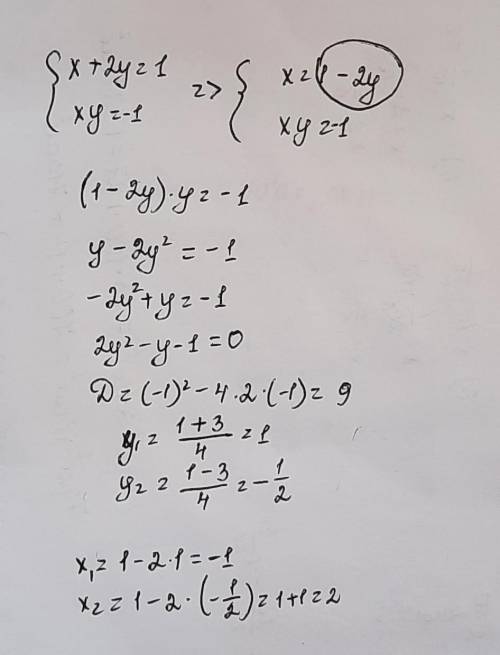 { x + 2y = 1 => { x = 1 - 2y
{ xy = -1 { xy = -1
(1 - 2y) · y = -1
y - 2y² = -1
-2y² + y = -1
2y² - y - 1 = 0
D = (-1)² - 4 · 2 · (-1) = 9
y₁ = (1 + 3)/4 = 1
y₂ = (1 - 3)/4 = -1/2
x₁ = 1 - 2 · 1 = -1
x₂ = 1 - 2 · (-1/2) = 1 + 1 = 2